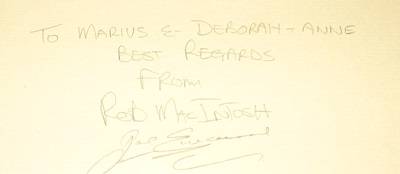 To Marius & Deborah-Anne
Best Regards
From
Rob MacIntosh